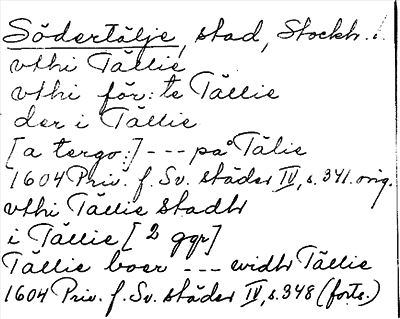 Södertälje, stad, Stockh. l.
vthi Tällie
vthi för:te Tällie
der i Tällie
[a tergo:] --- på Tälie
1604 Priv. f. Sv. städer IV, s. 341. orig.
vthi Tällie stadh
i Tällie [2 ggr]
Tällie boer --- widh Tällie
1604 Priv. f. Sv. städer IV, s. 348 (forts.)